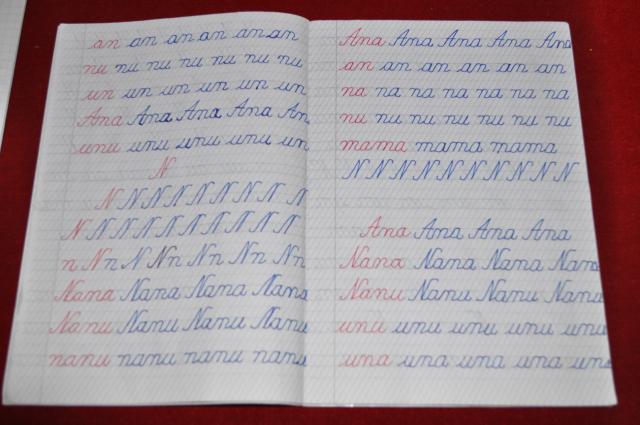 an an an an an an
nu nu nu nu nu nu nu
un un un un un un
Ana Ana Ana Ana An
unu unu unu unu un
N
N N N N N N N N N
N N N N N N N N N N
n N n N N n N n N n N n
Nana Nana Nana Nana
Nanu Nanu Nanu Nanu
nanu nanu nanu nanu
Ana Ana Ana Ana Ana
an an an an an an
na na na na na na
nu nu nu nu nu nu
mama mama mama
N N N N N N N N N N
Ana Ana Ana Ana
Nana Nana Nana Nana
Nanu Nanu Nanu Nanu
unu unu unu unu unu
una una una una una